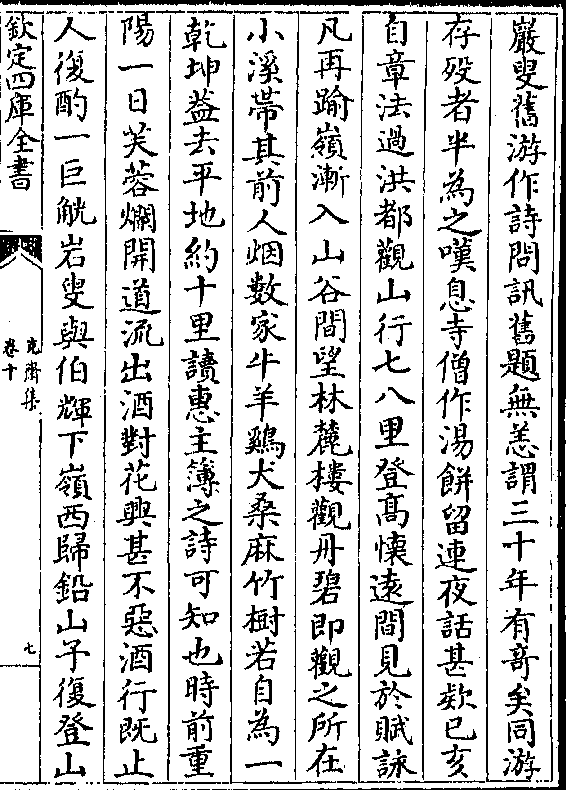 巖叟舊游作詩問訊舊題無恙謂三十年有竒矣同游
存殁者半為之嘆息寺僧作湯餅留連夜話甚欵已亥
自章法過洪都觀山行七八里登髙懐逺間見於賦詠
凡再踰嶺漸入山谷間望林麓樓觀丹碧即觀之所在
小溪帶其前人烟數家牛羊鷄犬桑麻竹樹若自為一
乾坤益去平地約十里讀惠主簿之詩可知也時前重
陽一日芙蓉爛開道流出酒對花興甚不惡酒行既止
人復酌一巨觥岩叟與伯輝下嶺西歸鉛山予復登山
欽定四庫全書
克齋集
卷十
七